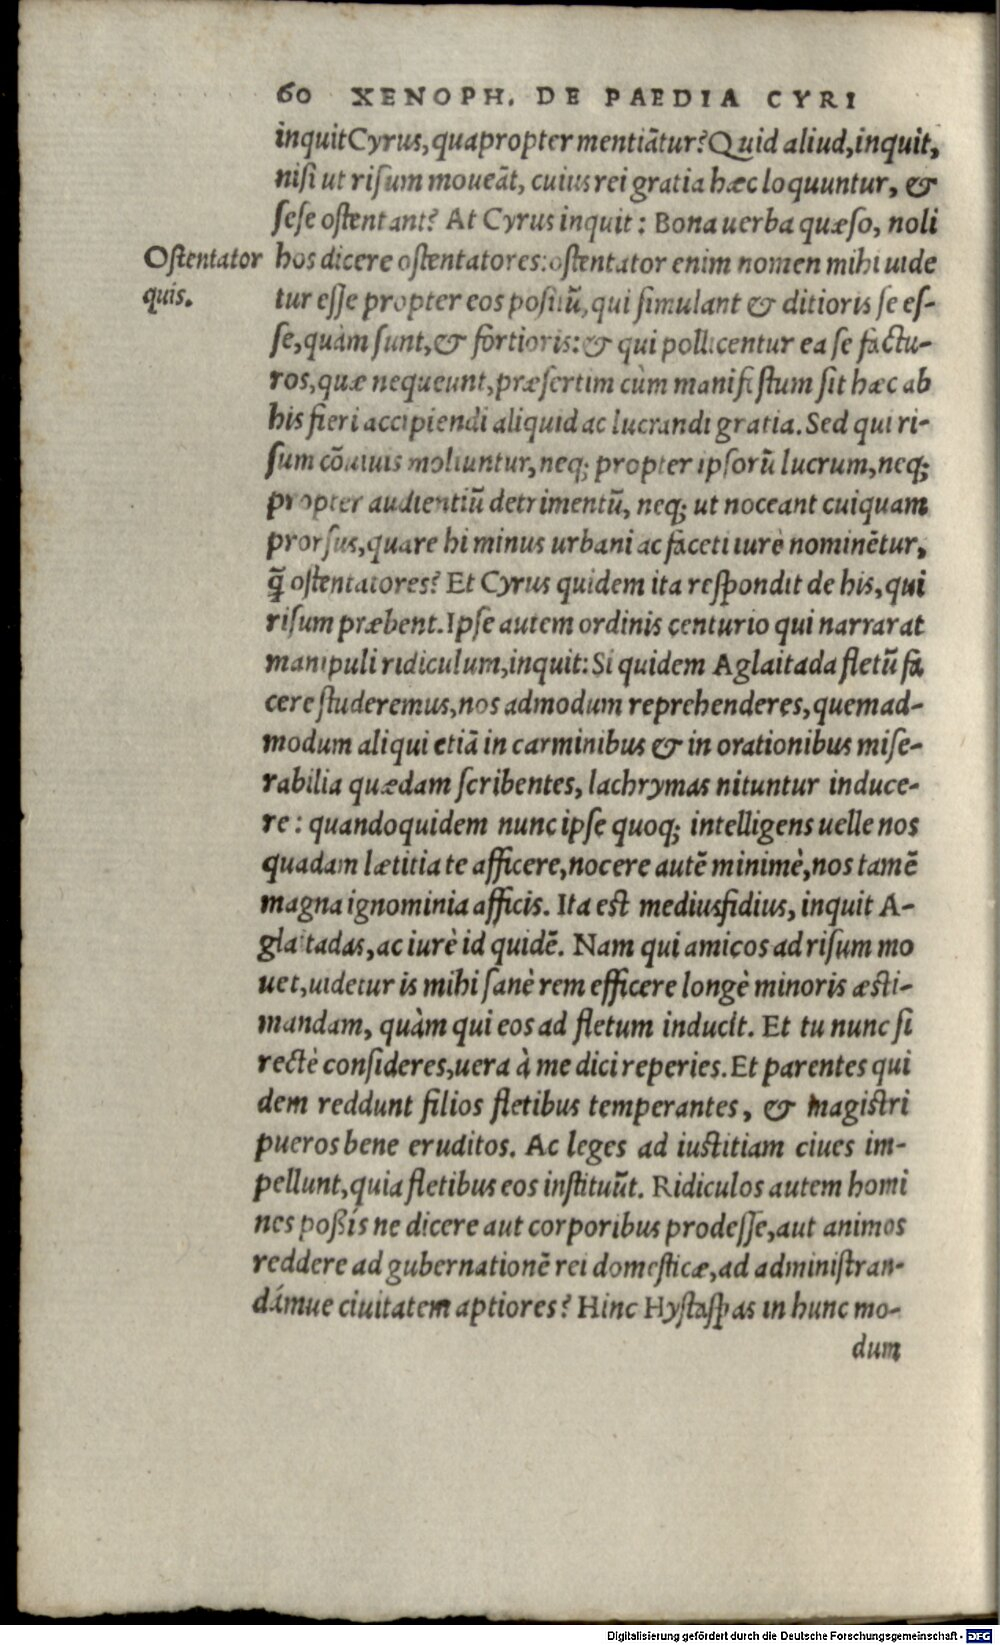 60 XENOPH. DE PAEDIA CYRI
inquit Cyrus, quapropter mentiātur? Quid aliud, inquit,
nisi ut risum moueāt, cuius rei gratia hæc loquuntur, &
sese ostentant? At Cyrus inquit: Bona uerba quæso, noli
Ostentator quis.
hos dicere ostentatores: ostentator enim nomen mihi uide
tur esse propter eos positū, qui simulant & ditioris se es-
se, quàm sunt, & fortioris: & qui pollicentur ea se factu-
ros, quæ nequeunt, præsertim cùm manifestum sit hæc ab
his fieri accipiendi aliquid ac lucrandi gratia. Sed qui ri-
sum cōuiuis moliuntur, neq; propter ipsorū lucrum, neq;
propter audientiū detrimentū, neq; ut noceant cuiquam
prorsus, quare hi minus urbani ac faceti iure nominētur,
q̄ ostentatores? Et Cyrus quidem ita respondit de his, qui
risum præbent. Ipse autem ordinis centurio qui narrarat
manipuli ridiculum, inquit: Si quidem Aglaitada fletū fa
cere studeremus, nos admodum reprehenderes, quemad-
modum aliqui etiā in carminibus & in orationibus mise-
rabilia quædam scribentes, lachrymas nituntur induce-
re: quandoquidem nunc ipse quoq; intelligens uelle nos
quadam lætitia te afficere, nocere autē minimè, nos tamē
magna ignominia afficis. Ita est mediusfidius, inquit A-
glaitadas, ac iurè id quidē. Nam qui amicos ad risum mo
uet, uidetur is mihi sanè rem efficere longè minoris æsti-
mandam, quàm qui eos ad fletum inducit. Et tu nunc si
rectè consideres, uera à me dici reperies. Et parentes qui
dem reddunt filios fletibus temperantes, & magistri
pueros bene eruditos. Ac leges ad iustitiam ciues im-
pellunt, quia fletibus eos instituūt. Ridiculos autem homi
nes poßis ne dicere aut corporibus prodesse, aut animos
reddere ad gubernationē rei domesticæ, ad administran-
dámue ciuitatem aptiores? Hinc Hystaspas in hunc mo-
dum
Digitalisierung gefördert durch die Deutsche Forschungsgemeinschaft - DFG